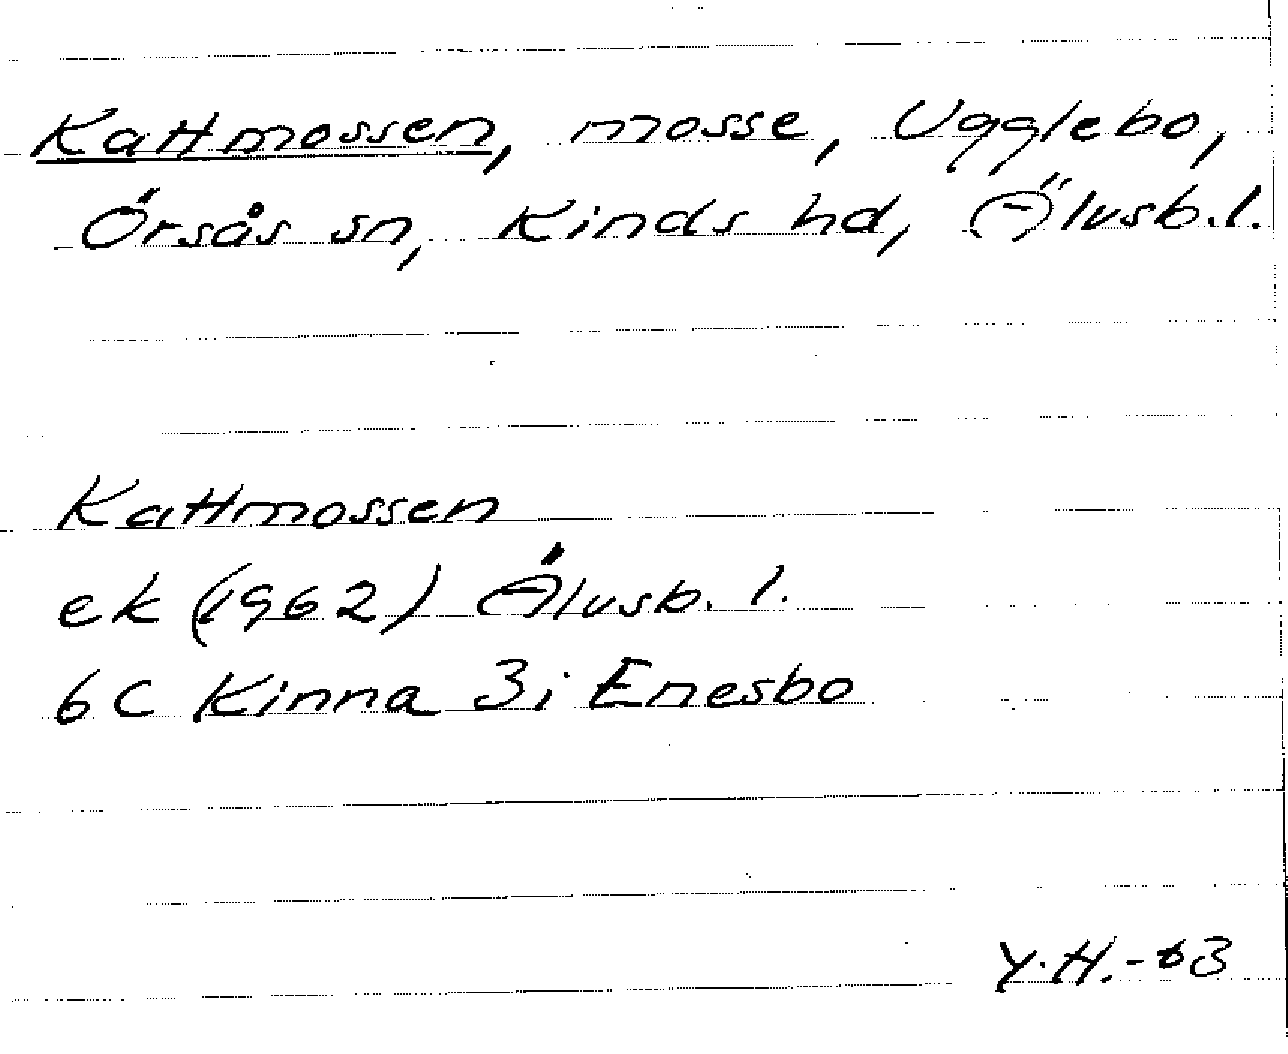 Kattmossen, mosse, Ugglebo,
Örsås sn, Kinds hd, Älvsb.l.
Kattmossen
ek (1962) Älvsb. l.
6C Kinna 3i Enesbo
Y.H.-63